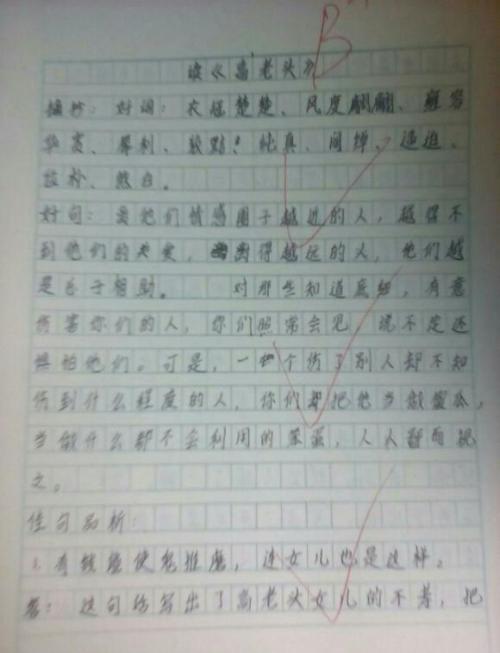 B
读《高老头》
摘抄：好词：衣冠楚楚、风度翩翩、雍容
华贵、犀利、狡黠！纯真、阔绰、逼迫、
拉朽、煞白。
好句：离他们情感圈子越近的人，越得不
到他们的关爱，离得越远的人，他们越
是乐于相助。 对那些知道底细，有意
伤害你们的人，你们照常会见，说不定还
惧怕他们。可是，一个伤了别人却不知
伤到什么程度的人，你们却把他当做傻瓜，
当做什么都不会利用的笨蛋，人人鄙而视
之。
佳句剖析：
1. 有钱能使鬼推磨，连女儿也是这样。
答：这句话写出了高老头女儿的不孝，把